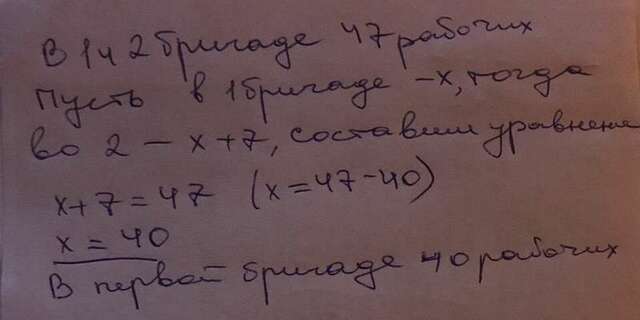 В 1 и 2 бригаде 47 рабочих
Пусть в 1 бригаде - х, тогда
во 2 - х+7, составим уравнение
х+7=47 (х=47-40)
х=40
В первой бригаде 40 рабочих